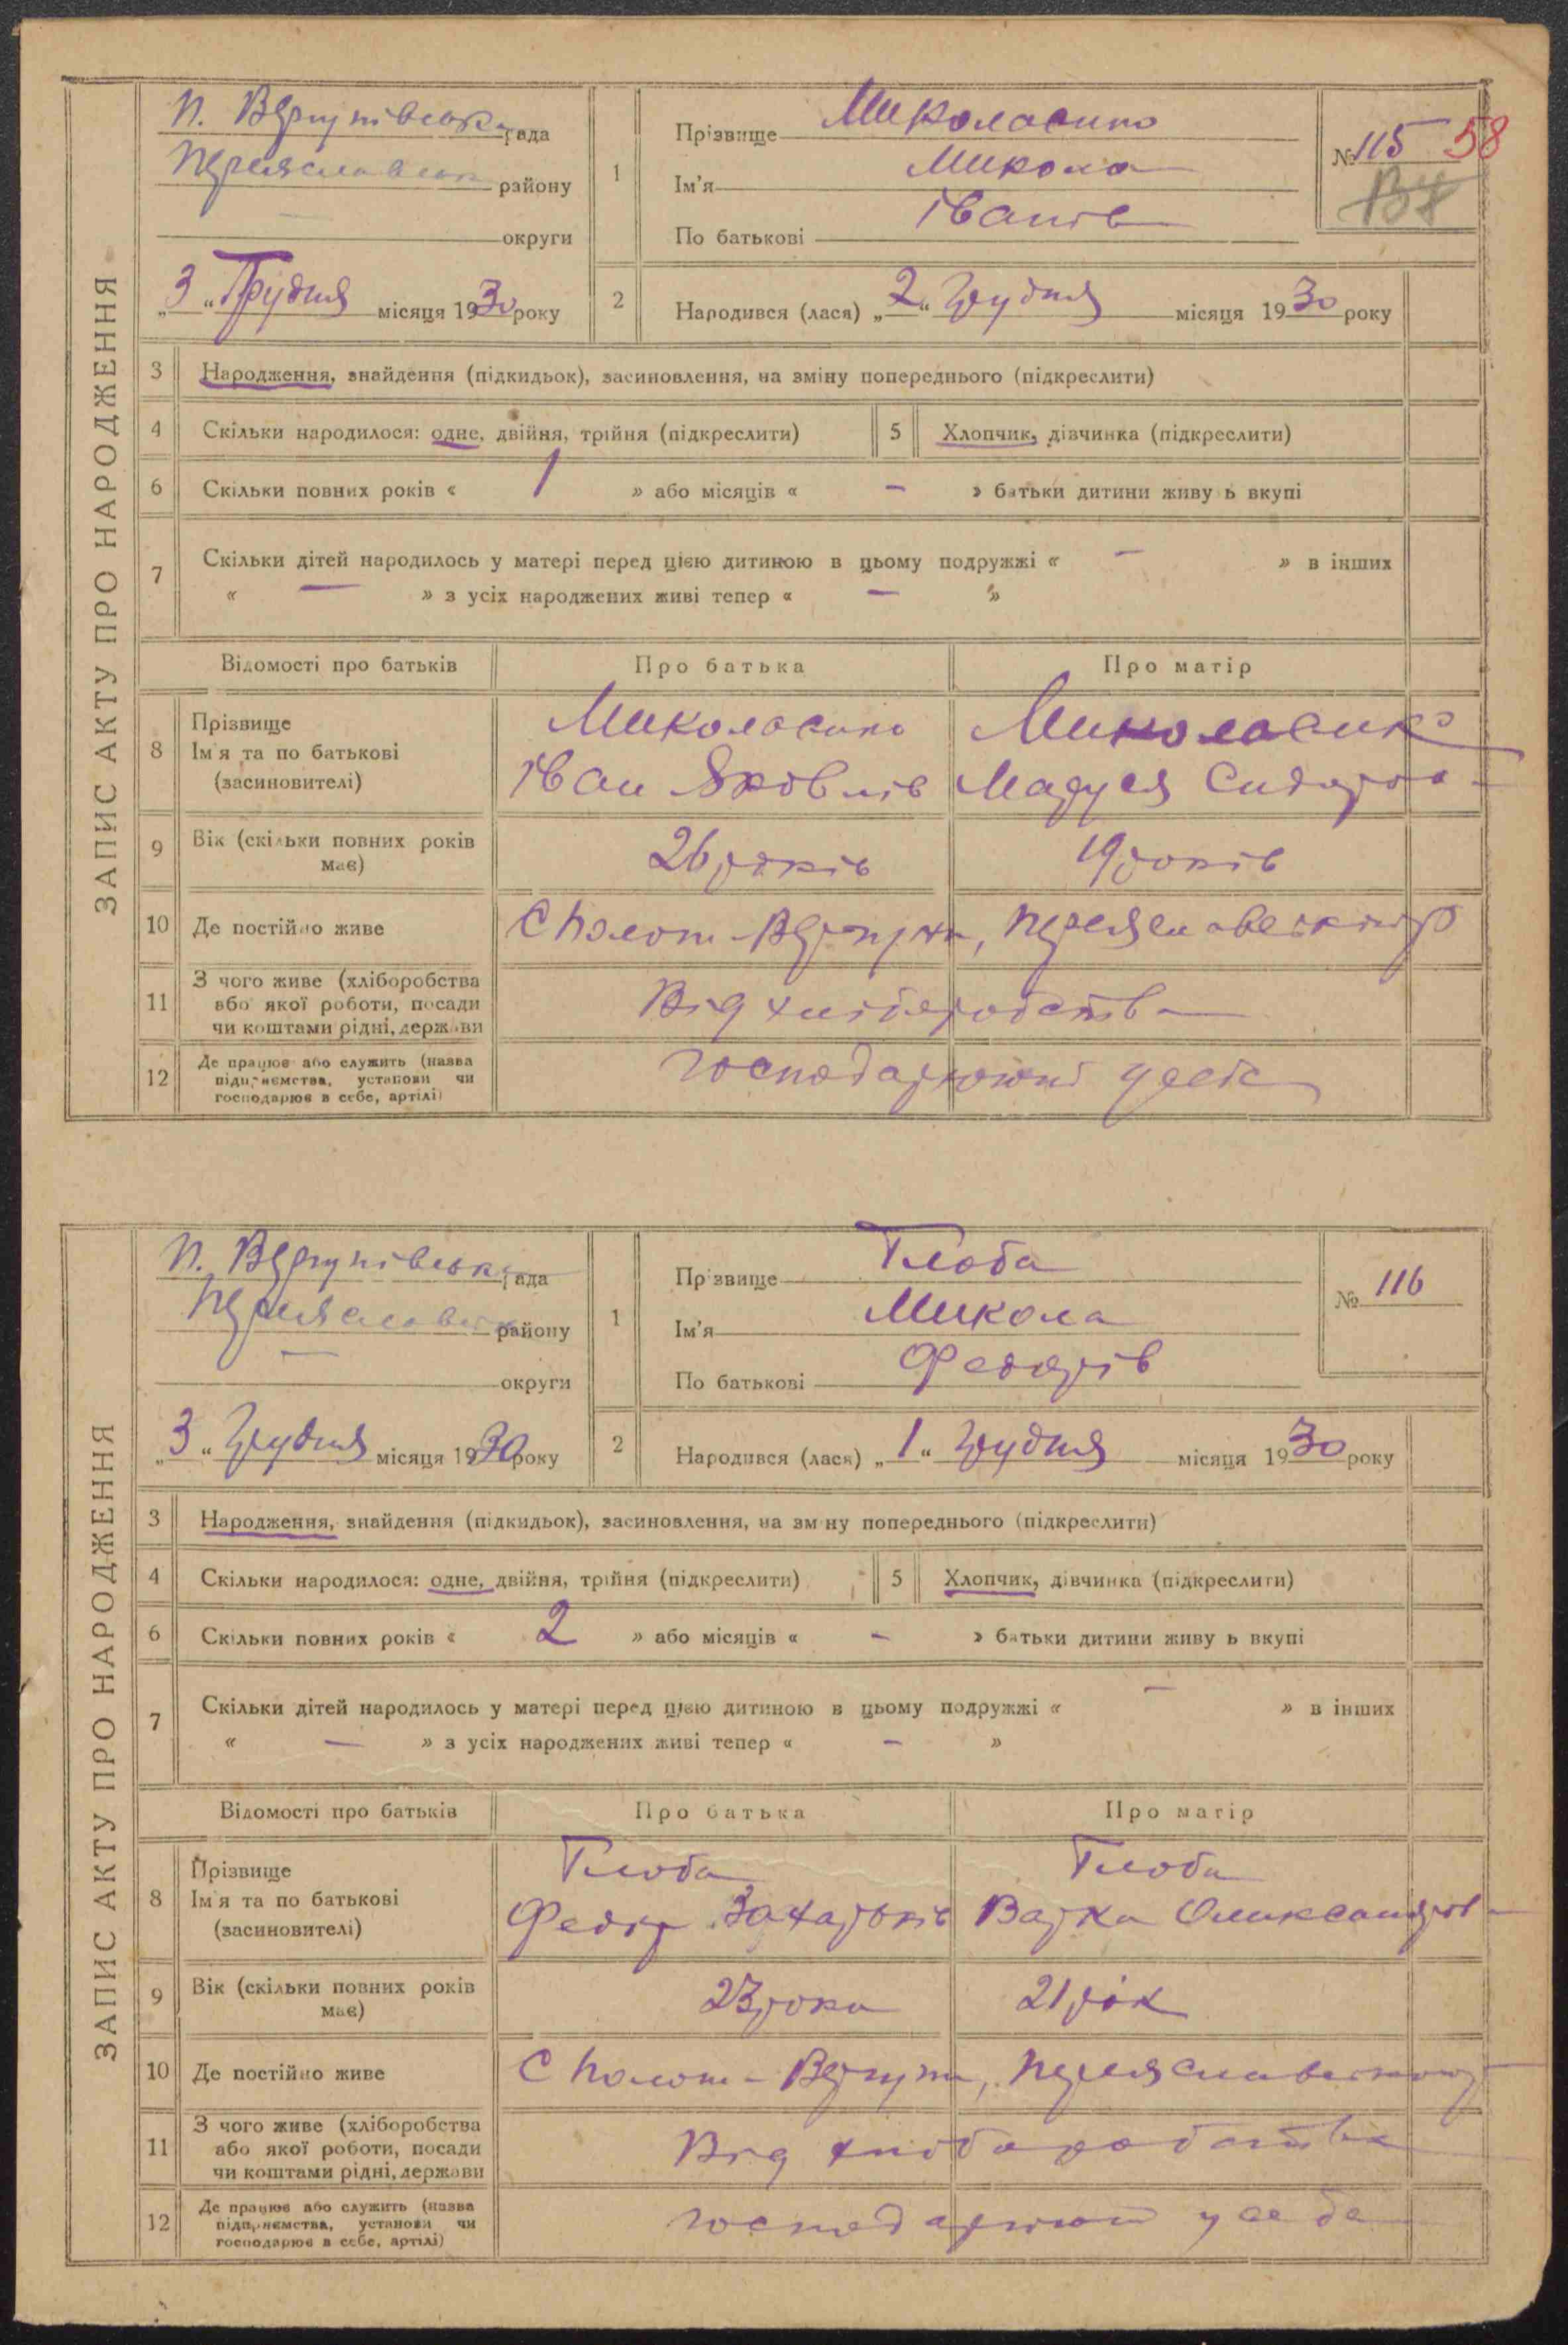 ЗАПИС АКТУ ПРО НАРОДЖЕННЯ
П. Вергунівська рада
Переяславськ району
округи
"3" Грудня місяця 1930 року
1
Прізвище
Ім'я Микола
По батькові Іванів
№ 115 58
137
2 Народився (лася) „2" Грудня місяця 1930 року
3 Народження, знайдення (підкидьок), засиновлення, на зміну попереднього (підкреслити)
4 Скільки народилося: одне, двійня, трійня (підкреслити) 5 Хлопчик, дівчинка (підкреслити)
6 Скільки повних років « 1 » або місяців « – » батьки дитини живу ь вкупі
7 Скільки дітей народилось у матері перед цією дитиною в цьому подружжі « – » в інших
« — » з усіх народжених живі тепер « – »
Відомості про батьків Про батька Про матір
8 Прізвище
Ім'я та по батькові
(засиновителі)
Іван Яковлів
Маруся Сидорова
9 Вік (скільки повних років має) 26 років 19 років
10 Де постійно живе С Полот-Вергуни, Переяславського р
11 З чого живе (хліборобства або якої роботи, посади чи коштами рідні, держави Від хліборобства
12 Де працює або служить (назва підприємства, установи чи господарює в себе, артілі) господарюють у себе
ЗАПИС АКТУ ПРО НАРОДЖЕННЯ
П. Вергунівська рада
Переяславськ району
округи
„3" Грудня місяця 1930 року
1
Прізвище Глоба
Ім'я Микола
По батькові Федорів
№ 116
2 Народився (лася) „1" Грудня місяця 1930 року
3 Народження, знайдення (підкидьок), засиновлення, на зм ну попереднього (підкреслити)
4 Скільки народилося: одне, двійня, трійня (підкреслити) 5 Хлопчик, дівчинка (підкреслити)
6 Скільки повних років « 2 » або місяців « – » батьки дитини живу ь вкупі
7 Скільки дітей народилось у матері перед цією дитиною в цьому подружжі « – » в інших
« — » з усіх народжених живі тепер « – »
Відомості про батьків Про батька Про матір
8 Прізвище
Ім'я та по батькові
(засиновителі)
Глоба Глоба
Федор Захарьків Варка Олександров
9 Вік (скільки повних років має) 23 роки 21 рік
10 Де постійно живе С Полот-Вергуни, Переяславського
11 З чого живе (хліборобства або якої роботи, посади чи коштами рідні, держави Від хліборобства
12 Де працює або служить (назва підприємства, установи чи господарює в себе, артілі) господарюють у себе